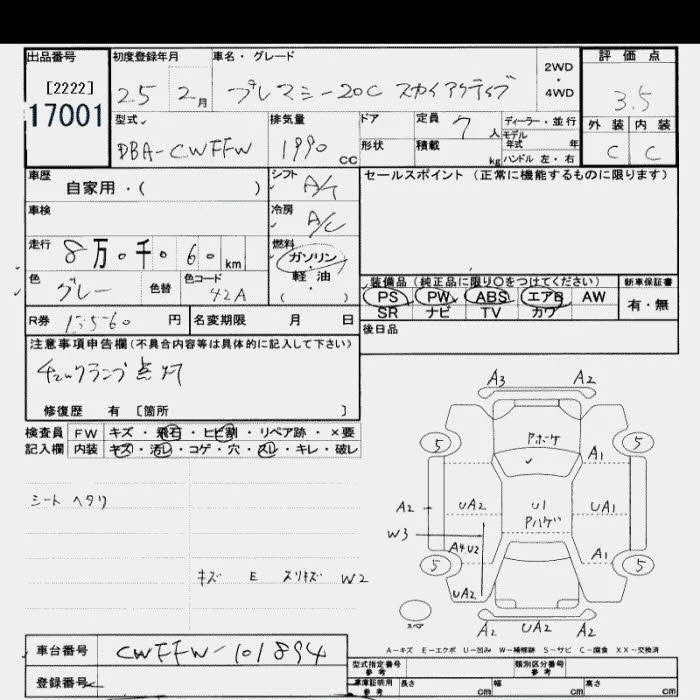 出品番号 初度登録年月 車名・グレード 2WD・4WD 評価点
[2222] 25 2月 プレマシー20C スカイアクティブ 3.5
17001
型式 排気量 ドア 定員 7人 ディーラー・並行 外装 内装
モデル年式 年
DBA-CWFFW 1990cc 形状 積載 kg ハンドル 左・右 C C
車歴 シフト セールスポイント(正常に機能するものに限ります)
自家用・( ) A/T
車検 冷房 A/C
走行 8万0千060km 燃料 ガソリン・軽油・( )
色 グレー 色替 色コード 42A
装備品(純正品に限り○をつけてください) 新車保証書
PS PW ABS エアB AW 有・無
SR ナビ TV カワ
R券 13560円 名変期限 月 日 後日品
注意事項申告欄(不具合内容等は具体的に記入して下さい)
チェックランプ点灯
修復歴 有 [箇所 ]
検査員 FW キズ・飛石・ヒビ割・リペア跡・×要
記入欄 内装 キズ・汚レ・コゲ・穴・スレ・キレ・破レ
シート ヘタリ
キズ E スリキズ W2
A3 A2
Pボケ
5 5
A1
A2 UA2 U1 UA1
Pハゲ
W3
A4U2 A1
5 5
UA2
A2 UA2 A2
スペア
A-キズ E-エクボ U-凹み W-補修跡 S-サビ C-腐食 XX-交換済
車台番号 CWFFW-101894
型式指定番号 参考 類別区分番号 参考
登録番号 車庫証明用 参考 長さ cm 幅 cm 高さ cm